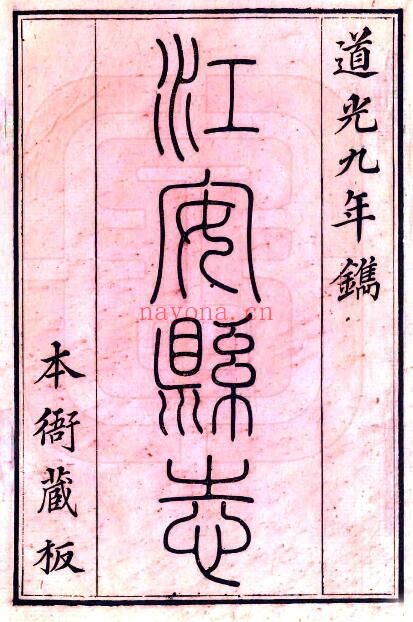 道光九年鐫
江安縣志
本衙藏板
nayona.cn